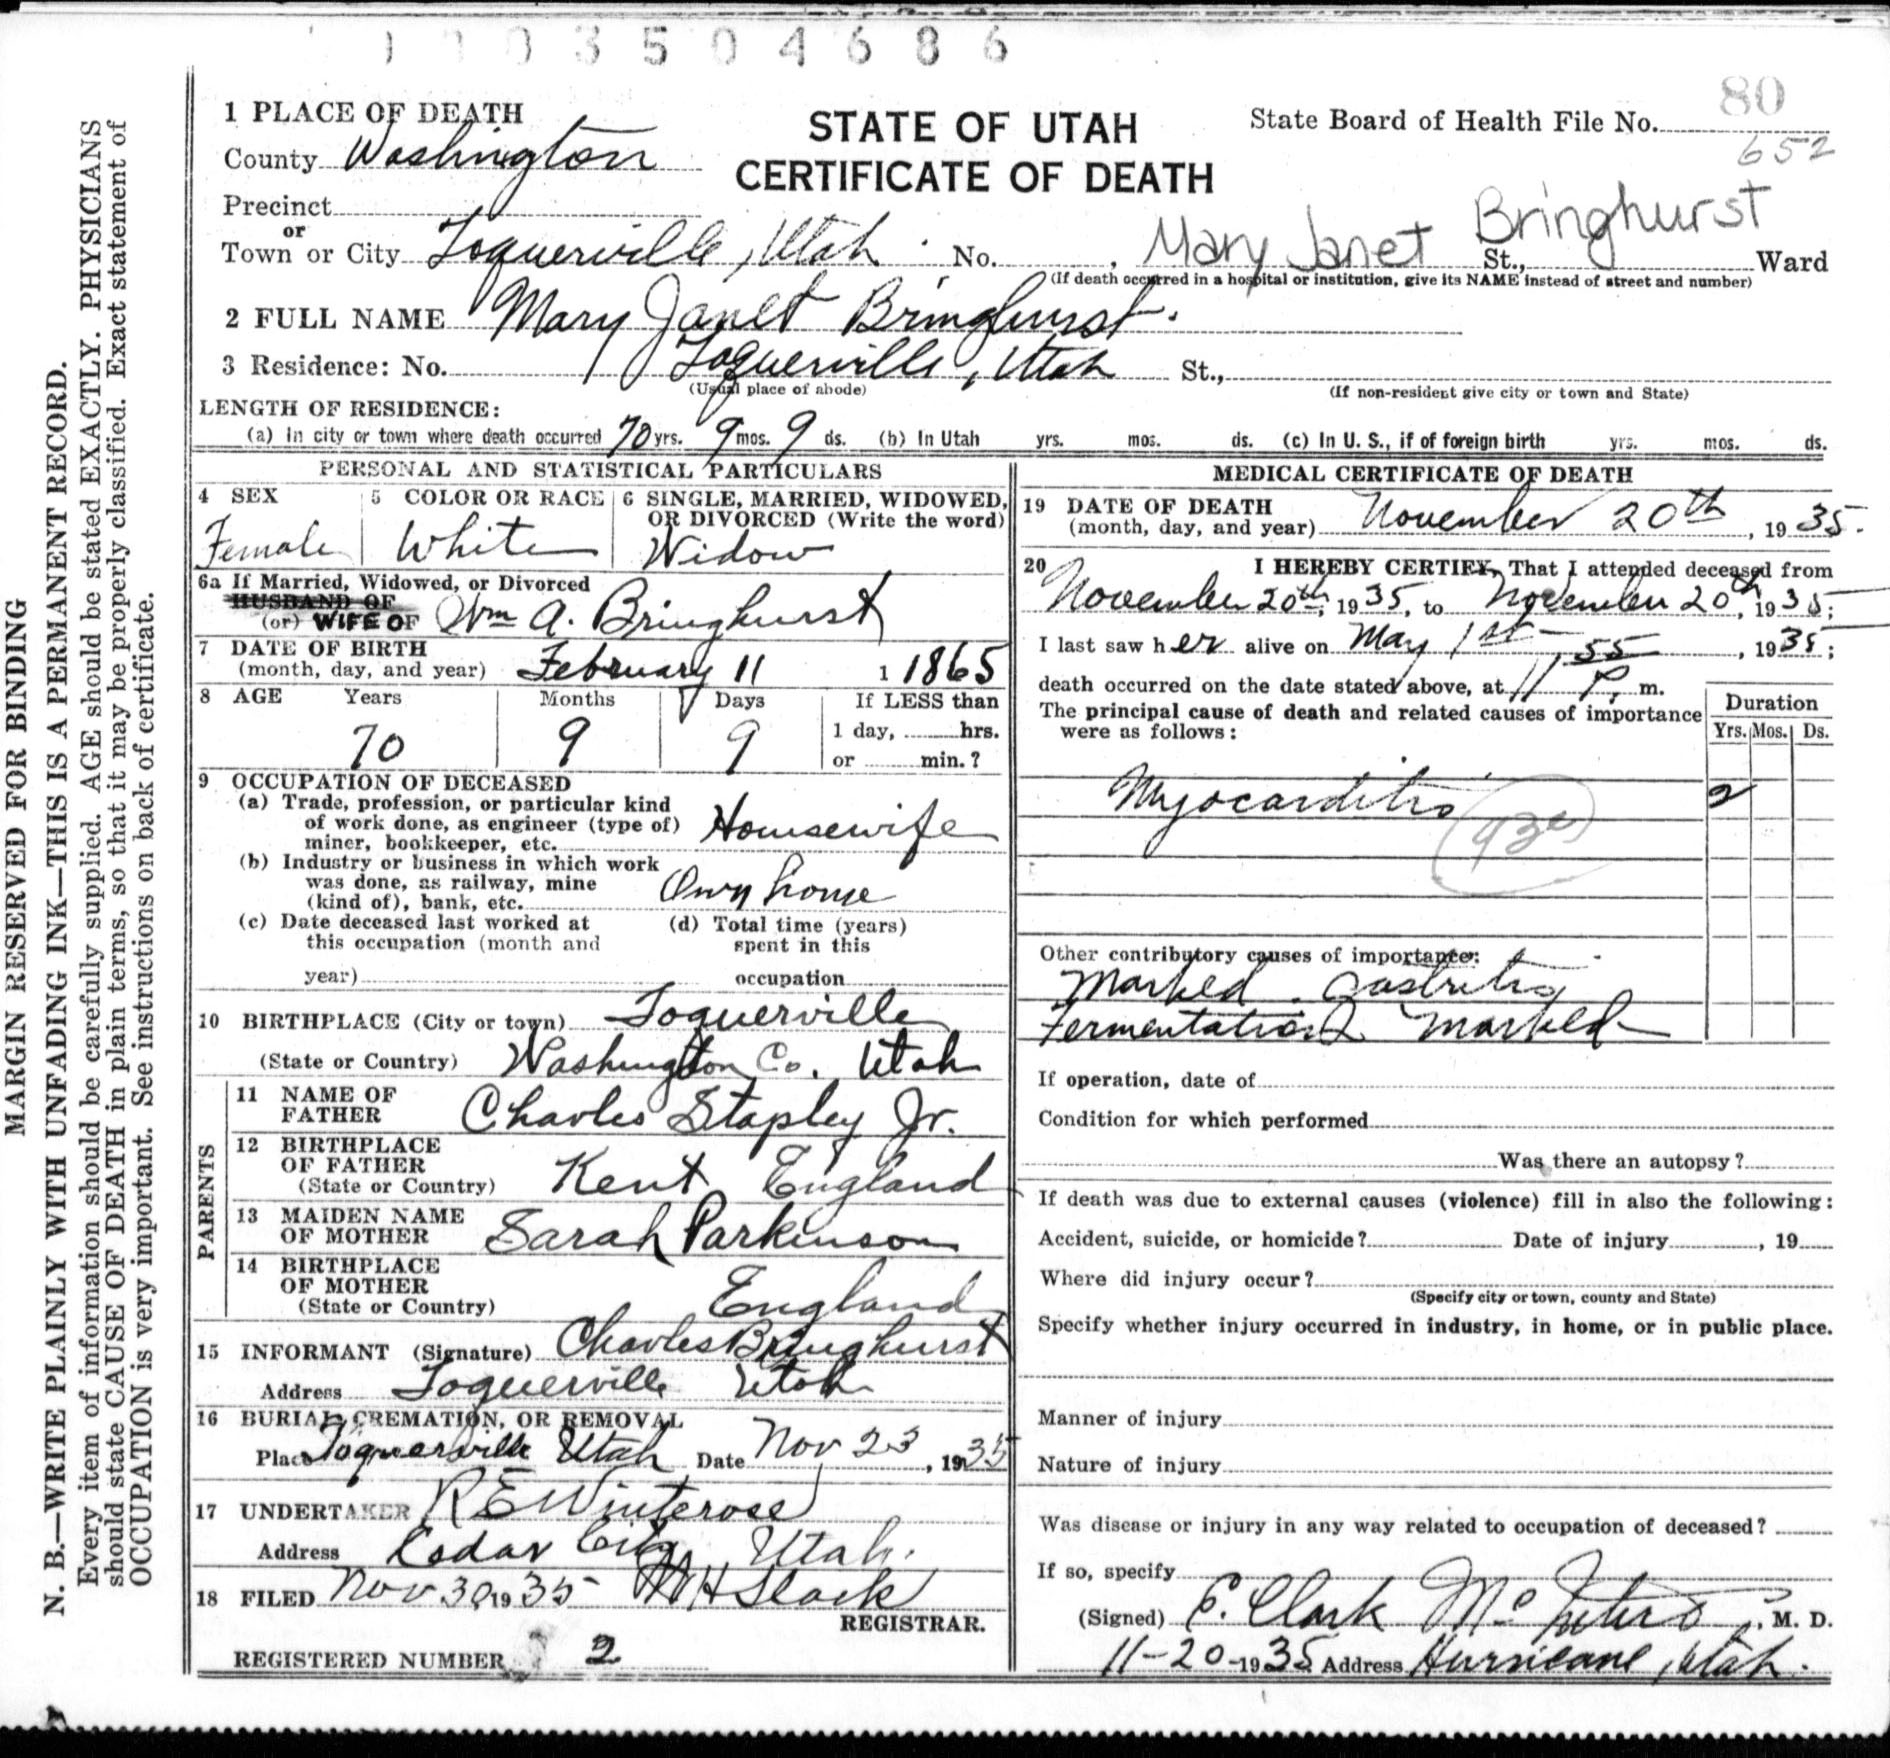 1 1 0 3 5 0 4 6 8 6
80
652
1 PLACE OF DEATH
County Washington
Precinct
or
Town or City Toquerville, Utah No. , St., Ward
STATE OF UTAH
CERTIFICATE OF DEATH
State Board of Health File No.
Mary Janet Bringhurst
(If death occurred in a hospital or institution, give its NAME instead of street and number)
2 FULL NAME Mary Janet Bringhurst.
3 Residence: No. Toquerville, Utah St.,
(Usual place of abode) (If non-resident give city or town and State)
LENGTH OF RESIDENCE:
(a) In city or town where death occurred 70 yrs. 9 mos. 9 ds. (b) In Utah yrs. mos. ds. (c) In U. S., if of foreign birth yrs. mos. ds.
PERSONAL AND STATISTICAL PARTICULARS
4 SEX
Female
5 COLOR OR RACE
White
6 SINGLE, MARRIED, WIDOWED,
OR DIVORCED (Write the word)
Widow
6a If Married, Widowed, or Divorced
HUSBAND OF
(or) WIFE OF Wm A. Bringhurst
7 DATE OF BIRTH
(month, day, and year) February 11 1 1865
8 AGE Years Months Days If LESS than
70 9 9 1 day, hrs.
or min.?
9 OCCUPATION OF DECEASED
(a) Trade, profession, or particular kind
of work done, as engineer (type of)
miner, bookkeeper, etc. Housewife
(b) Industry or business in which work
was done, as railway, mine
(kind of), bank, etc. Own home
(c) Date deceased last worked at
this occupation (month and
year)
(d) Total time (years)
spent in this
occupation
10 BIRTHPLACE (City or town) Toquerville
(State or Country) Washington Co. Utah
PARENTS
11 NAME OF
FATHER Charles Stapley Jr.
12 BIRTHPLACE
OF FATHER
(State or Country) Kent England
13 MAIDEN NAME
OF MOTHER Sarah Parkinson
14 BIRTHPLACE
OF MOTHER
(State or Country) England
15 INFORMANT (Signature) Charles Bringhurst
Address Toquerville Utah
16 BURIAL, CREMATION, OR REMOVAL
Place Toquerville Utah Date Nov 23, 1935
17 UNDERTAKER R E Winterose
Address Cedar City, Utah.
18 FILED Nov 30 1935 Slack
REGISTRAR.
REGISTERED NUMBER 2
MEDICAL CERTIFICATE OF DEATH
19 DATE OF DEATH
(month, day, and year) November 20th, 1935.
20 I HEREBY CERTIFY, That I attended deceased from
November 20th, 1935, to November 20th, 1935;
I last saw her alive on May 1st, 1935;
death occurred on the date stated above, at 11 55 P. m.
The principal cause of death and related causes of importance
were as follows:
Duration
Yrs. Mos. Ds.
Myocarditis 2
Other contributory causes of importance:
Marked Gastritis
Fermentation Marked
If operation, date of
Condition for which performed
Was there an autopsy?
If death was due to external causes (violence) fill in also the following:
Accident, suicide, or homicide? Date of injury , 19
Where did injury occur?
(Specify city or town, county and State)
Specify whether injury occurred in industry, in home, or in public place.
Manner of injury
Nature of injury
Was disease or injury in any way related to occupation of deceased?
If so, specify
(Signed) E. Clark , M. D.
11-20-1935 Address Hurricane, Utah.
MARGIN RESERVED FOR BINDING
N. B.—WRITE PLAINLY WITH UNFADING INK—THIS IS A PERMANENT RECORD.
Every item of information should be carefully supplied. AGE should be stated EXACTLY. PHYSICIANS
should state CAUSE OF DEATH in plain terms, so that it may be properly classified. Exact statement of
OCCUPATION is very important. See instructions on back of certificate.